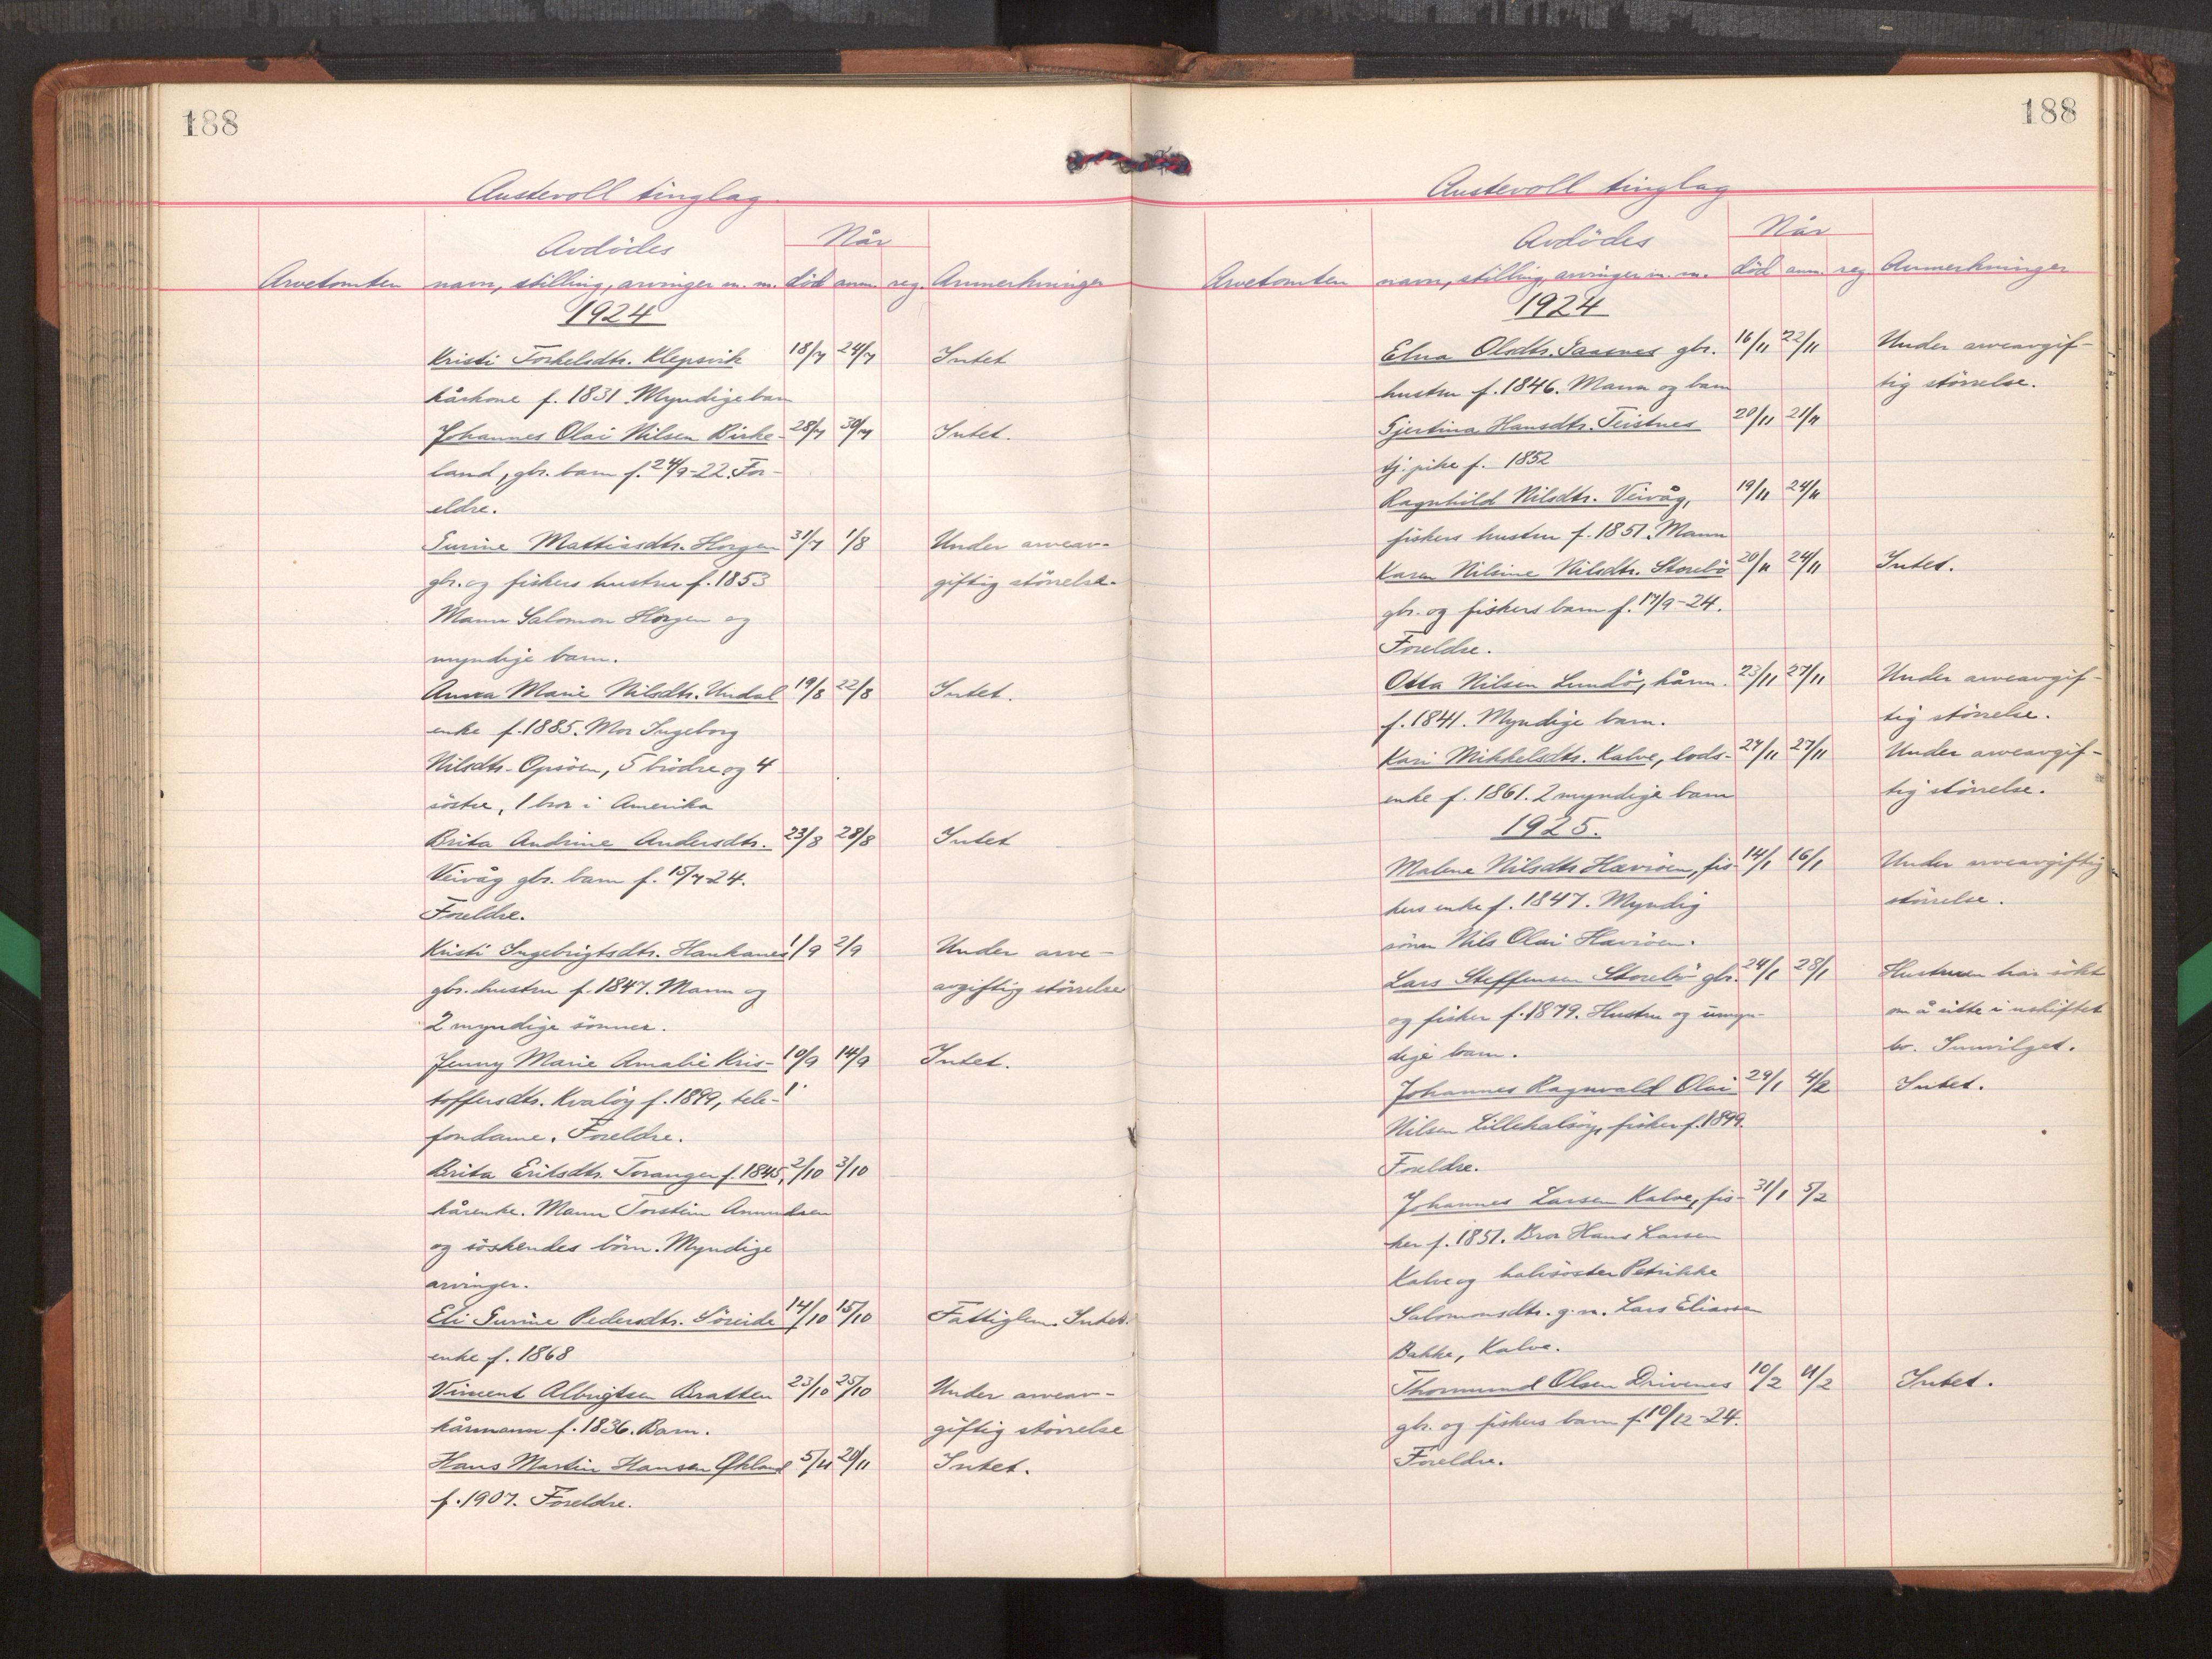 188
Austevoll tinglag.
Avdödes
Når
Arvetomten navn, stilling, arvinger m. m. död anm. reg. Anmerkninger
1924
Kristi Torkelsdtr. Klepsvik 18/7 24/7 Intet
kårkone f. 1831. Myndige barn
Johannes Olai Nilsen Birke- 28/7 30/7 Intet.
land, gbr. barn f. 24/9-22. For-
eldre.
Gurine Mattiasdtr. Horgen 31/7 1/8 Under arveav-
gbr. og fiskers hustru f. 1853 giftig störrelse.
Mann Salomon Horgen og
myndige barn.
Anna Marie Nilsdtr. Undal 19/8 22/8 Intet.
enke f. 1885. Mor Ingeborg
Nilsdtr. Opsöen, 5 brödre og 4
söstre, 1 bror i Amerika
Brita Andrine Andersdtr. 23/8 28/8 Intet
Veivåg gbr. barn f. 15/7-24.
Foreldre.
Kristi Ingebrigtsdtr. Haukanes 1/9 2/9 Under arve-
gbr. hustru f. 1847. Mann og avgiftig störrelse
2 myndige sönner.
Jenny Marie Amalie Kris- 10/9 14/9 Intet.
toffersdtr. Kvalöy f. 1899, tele-
fondame. Foreldre.
Brita Eriksdtr. Toranger f. 1845, 2/10 3/10
kårenke. Mann Torstein Anmundsen
og söskendes börn. Myndige
arvinger.
Eli Gurine Pedersdtr. Söreide 14/10 15/10 Fattiglem. Intet.
enke f. 1868
Vincent Albrigtsen Bratten 23/10 25/10 Under arveav-
kårmann f. 1836. Barn. giftig störrelse
Hans Martin Hansen Ökland 5/11 20/11 Intet.
f. 1907. Foreldre.
188
Austevoll tinglag
Avdödes
Når
Arvetomten navn, stilling, arvinger m. m. död anm. reg Anmerkninger
1924
Elna Olsdtr. gbr. 16/11 22/11 Under arveavgif-
hustru f. 1846. Mann og barn tig störrelse.
Gjertina Hansdtr. Teistnes 20/11 21/11
tj. pike f. 1852
Ragnhild Nilsdtr. Veivåg, 19/11 24/11
fiskers hustru f. 1851. Mann
Karen Nilsine Nilsdtr. Storebö 20/11 24/11 Intet.
gbr. og fiskers barn f. 17/9-24.
Foreldre.
Otta Nilsen Lundö, kårm. 23/11 27/11 Under arveavgif-
f. 1841. Myndige barn. tig störrelse.
Kari Mikkelsdtr. Kalve, lods- 24/11 27/11 Under arveavgif-
enke f. 1861. 2 myndige barn tig störrelse.
1925.
Malene Nilsdtr. Hævröen, fis- 14/1 16/1 Under arveavgiftig
kers enke f. 1847. Myndig störrelse.
sönn Nils Olai Hævröen.
Lars Steffensen Storebö gbr. 24/1 28/1 Hustruen har sökt
og fisker f. 1879. Hustru og umyn- om å sitte i uskiftet
dige barn. bo. Innvilget.
Johannes Ragnvald Olai 29/1 4/2 Intet.
Nilsen Lillehalsöy, fisker f. 1899.
Foreldre.
Johannes Larsen Kalve, fis- 31/1 5/2
ker f. 1851. Bror Hans Larsen
Kalve og halvsöster Petrikke
Salomonsdtr. g. m. Lars Eliassen
Bakke, Kalve.
Thormund Olsen Drivenes 10/2 11/2 Intet.
gbr. og fiskers barn f. 10/12-24.
Foreldre.